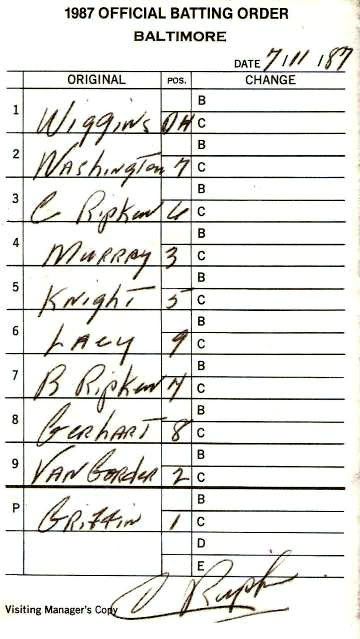 1987 OFFICIAL BATTING ORDER
BALTIMORE
DATE 7/11/87
ORIGINAL POS. CHANGE
B
1 Wiggins DH C
B
2 Washington 7 C
B
3 C Ripken 6 C
B
4 Murray 3 C
B
5 Knight 5 C
B
6 Lacy 9 C
B
7 B Ripken 4 C
B
8 Gerhart 8 C
B
9 Van Gorder 2 C
B
P Griffin 1 C
D
E
Visiting Manager's Copy Ripken